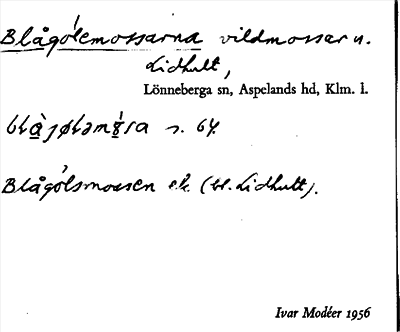 Blågölemossarna vildmossar n.
Lidhult,
Lönneberga sn, Aspelands hd, Klm. l.
s. 64
Blågölsmossen ek. (bl. Lidhult).
Ivar Modéer 1956